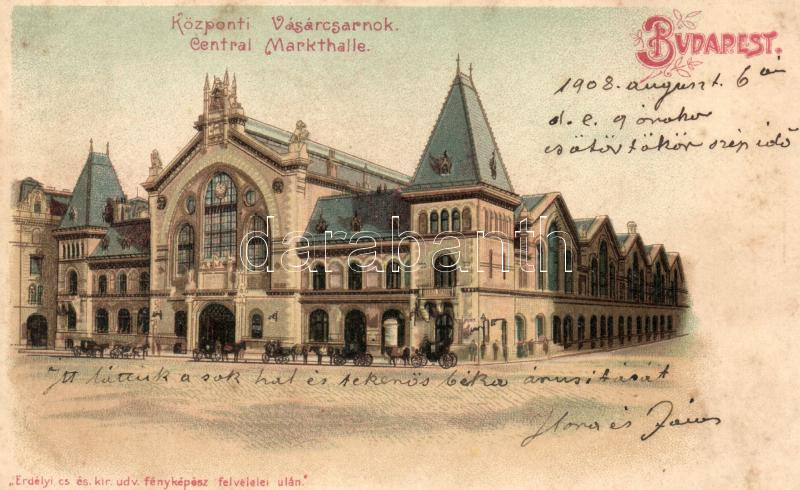 Központi Vásárcsarnok.
Central Markthalle.
BUDAPEST.
1908. auguszt. 6 án
d. e. 9 órakor
csötörtökön szép idő
darabanth
Itt láttuk a sok hal és tekenős béka árusitását
Ilona és János
„Erdélyi cs és. kir. udv. fényképész felvételei után."